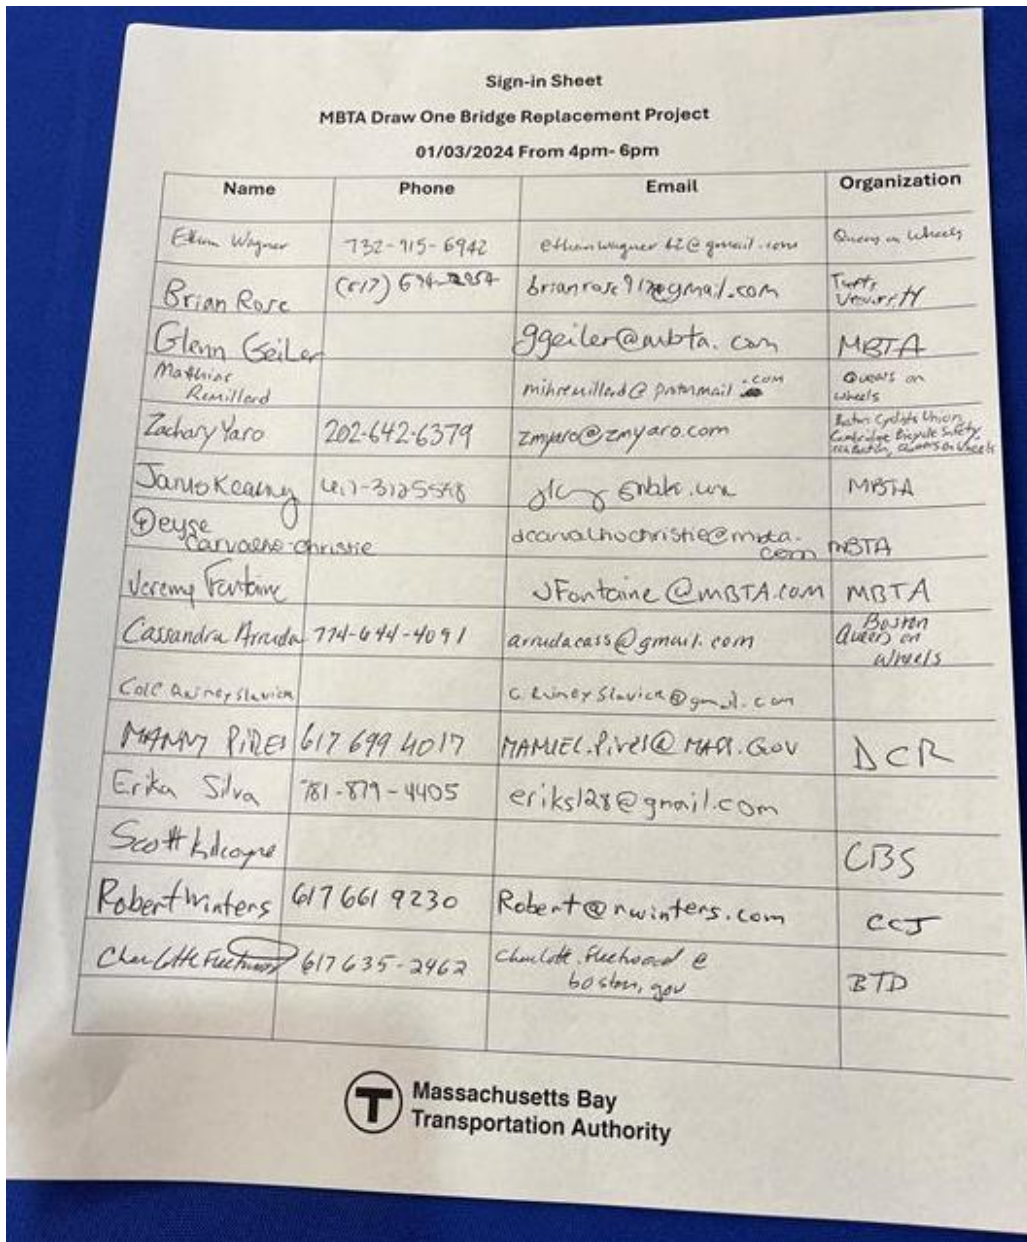 Sign-in Sheet
MBTA Draw One Bridge Replacement Project
01/03/2024 From 4pm- 6pm
Name Phone Email Organization
Ethan Wagner 732-915-6942 ethanwagner62@gmail.com Queers on Wheels
Brian Rose (617) brianrose917@gmail.com Tufts
University
Glenn Geiler ggeiler@mbta.com MBTA
Mathias
Remillard mihremillard@protonmail.com Queers on
wheels
Zachary Yaro 202-642-6379 zmyaro@zmyaro.com Boston Cyclists Union,
Cambridge Bicycle Safety,
Queers on Wheels
MBTA
Deyse
Carvalho-christie dcarvalhochristie@mbta.
com MBTA
Jeremy Fontaine JFontaine@MBTA.com MBTA
Cassandra Arruda 774-644-4091 arrudacass@gmail.com Boston
Queers on
Wheels
MANNY PIRES 617 699 4017 DCR
Erika Silva 781-879-4405 eriks128@gmail.com
Scott Kilcoyne CBS
Robert Winters 617 661 9230 Robert@rwinters.com CCJ
Charlotte Fleetwood 617 635-2462 charlotte.fleetwood@
boston.gov BTD
T
Massachusetts Bay
Transportation Authority